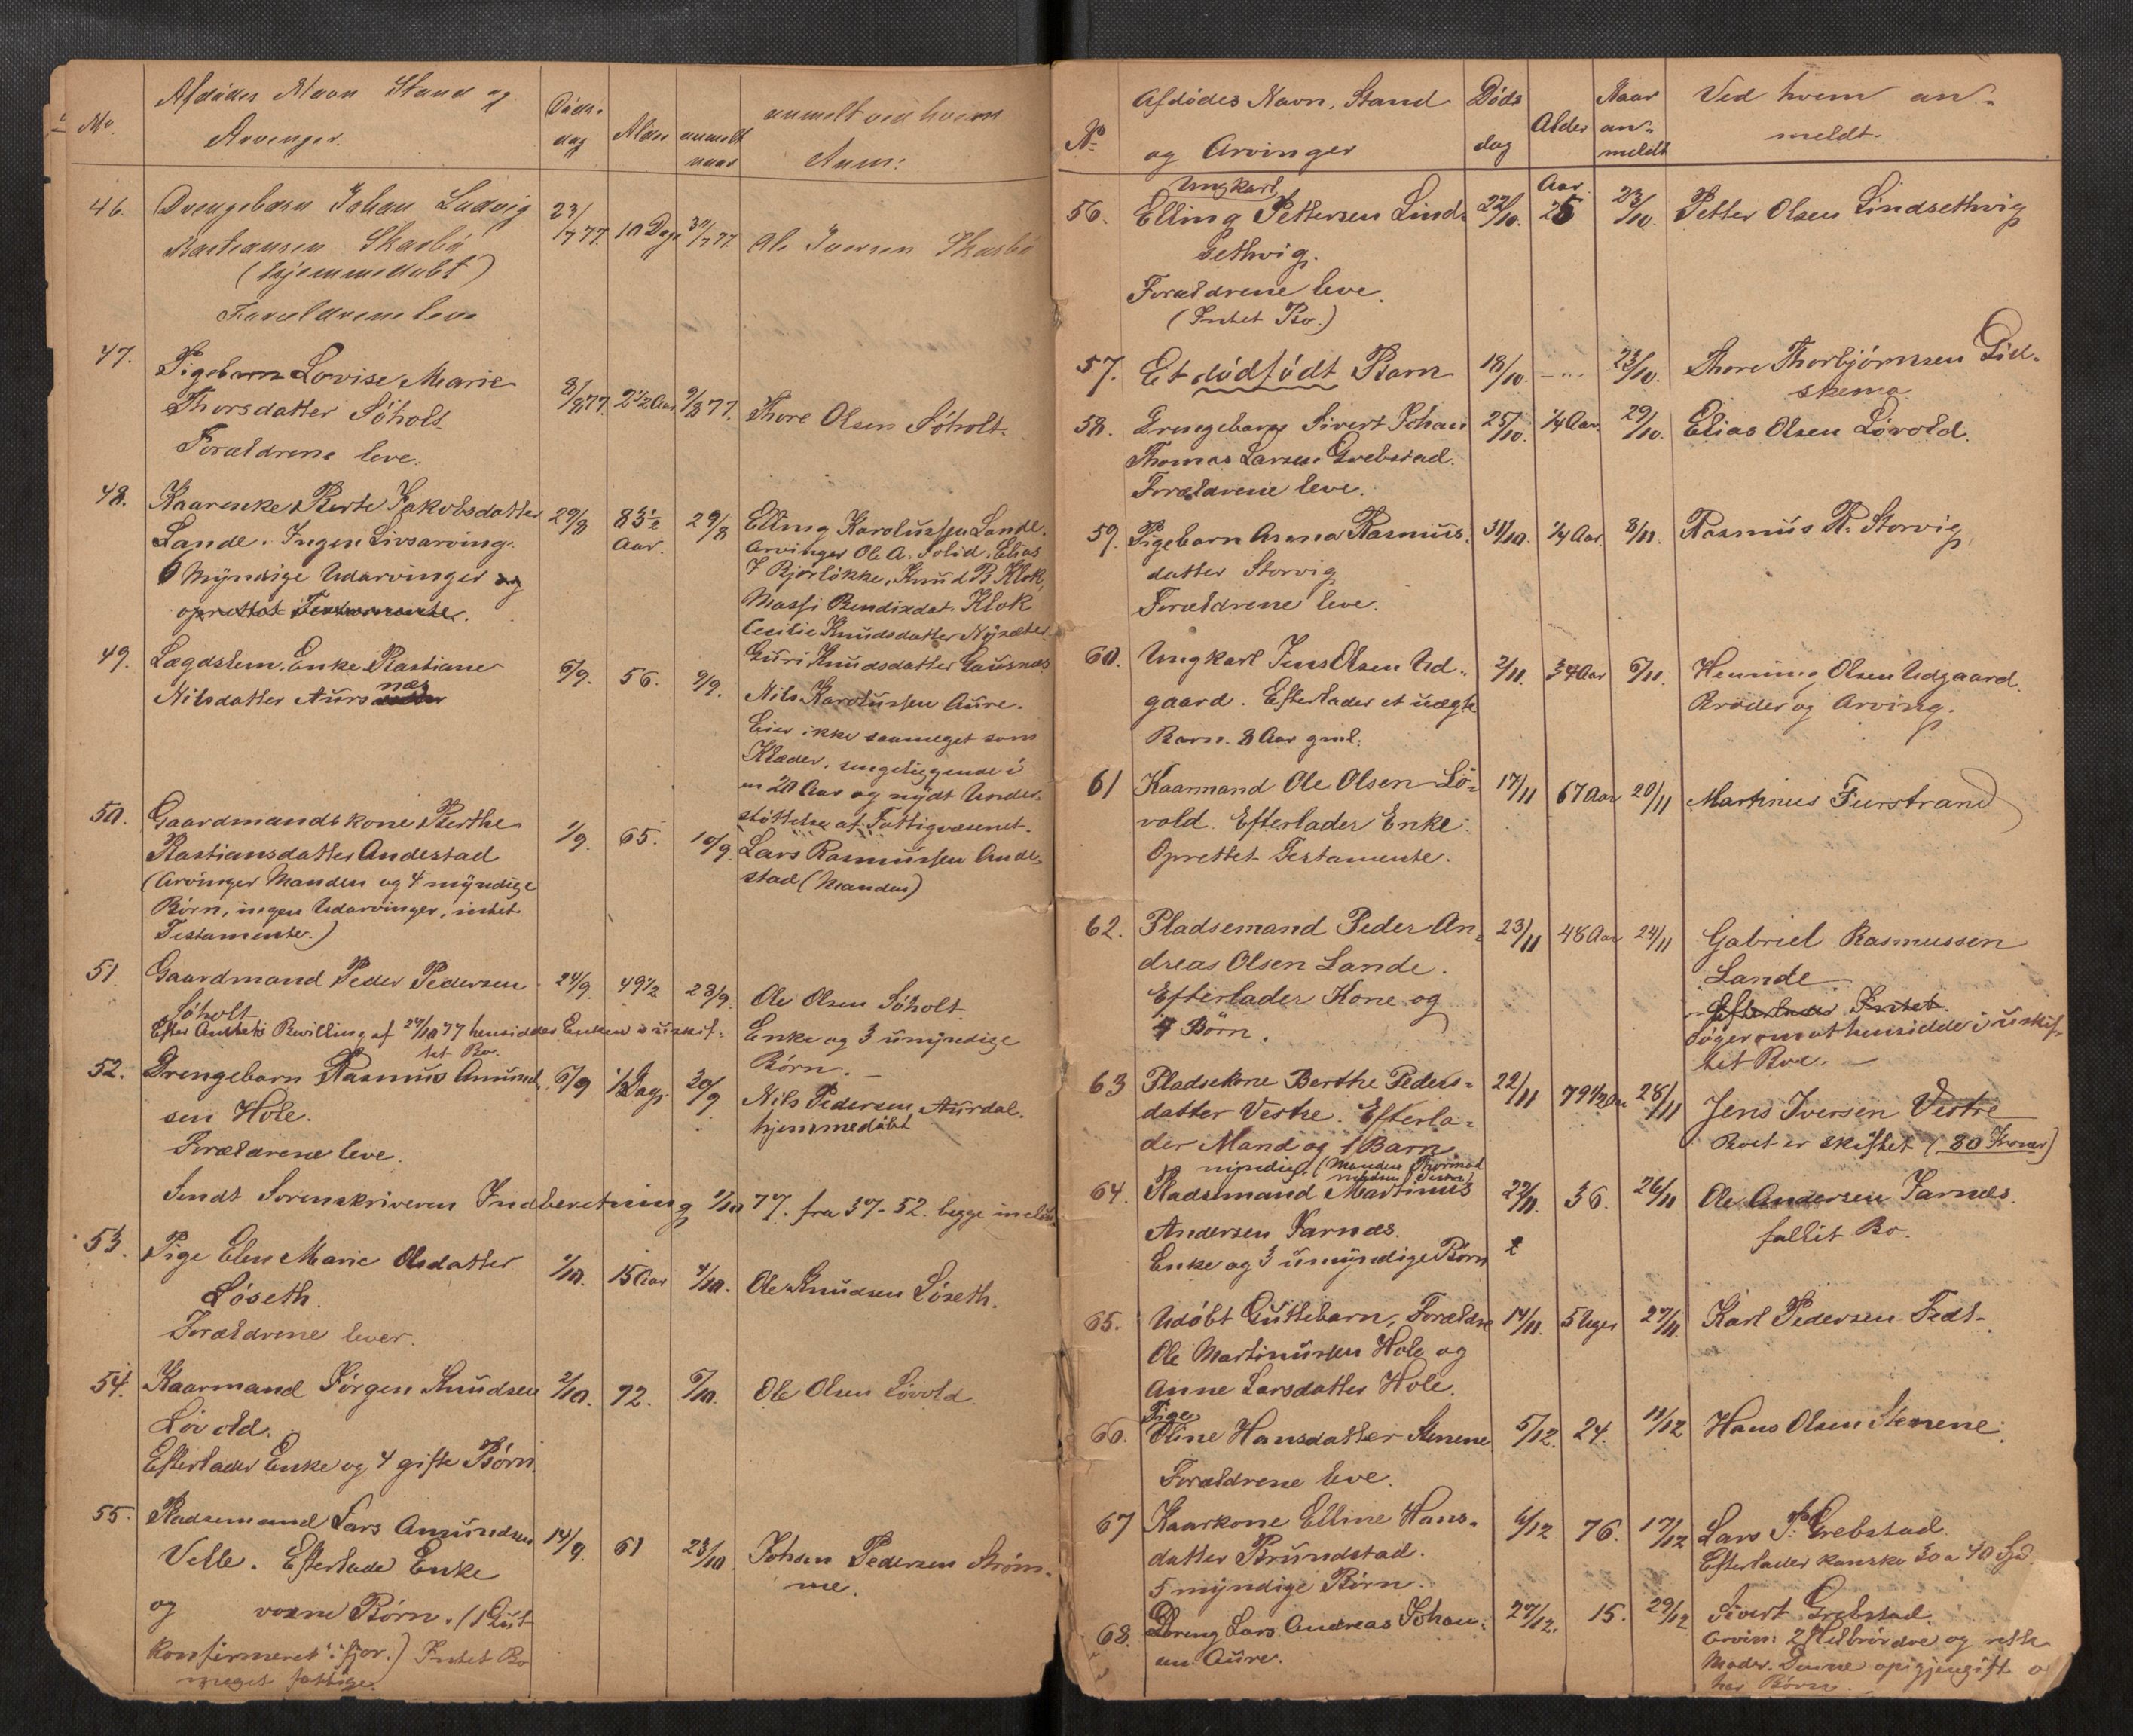 No. Afdødes Navn Stand og Arvinger. Døds- dag Alder anmeldt naar anmelt ved hvem Anm:
46. Drengebarn Johan Ludvig 23/7 77. 10 Dage 30/7 77.
Bastiansen Skarbø Ole Iversen Skarbø
(hjemmedøbt)
Forældrene leve
47. Pigebarn Lovise Marie
Thorsdatter Søholt 8/8 77. 2 1/2 Aar 9/8 77. Thore Olsen Søholt.
Forældrene leve.
48. Kaarenke Berte Jakobsdatter 29/8 83 1/2 29/8 Elling Karolussen Lande.
Lande. Ingen Livsarving. Aar. Arvinger Ole A. Solid, Elias
6 Myndige Udarvinger og J Bjørløkke, Knud B. Klok,
oprettet Testamente. Massi Bendixdat. Klok
Cecilie Knudsdatter Nysæter
Guri Knudsdatter Gausnæs
49. Lægdslem. Enke Bastiane 6/9. 56. 9/9.
Nilsdatter Aursnæs Nils Karolussen Aure.
Eier ikke saameget som
Klæder, sengeliggende i
en 20 Aar og nydt Under-
støttelse af Fattigvæsenet.
50. Gaardmandskone Berthe 1/9. 65. 10/9. Lars Rasmussen Ande-
Bastiansdatter Andestad stad (Manden)
(Arvinger Manden og 4 myndige
Børn, ingen Udarvinger, intet
Testamente.)
51. Gaardmand Peder Pedersen 24/9. 49 1/2 28/9. Ole Olsen Søholt.
Søholt Enke og 3 umyndige
Efter Amtets Bevilling af 24/10 77 hensidder Enken i uskif- Børn. —
tet Bo.
52. Drengebarn Rasmus Amund- 6/9 1/2 Dag. 30/9 Nils Pedersen Aurdal.
sen Hole. hjemmedøbt
Forældrene leve.
Sendt Sorenskriveren Indberetning 1/10 77. fra 37-52. begge incl.
53. Pige Elen Marie Olsdatter
Løseth. 1/10. 15 Aar 4/10. Ole Knudsen Løseth.
Forældrene lever.
54. Kaarmand Jørgen Knudsen 2/10. 72. 5/10. Ole Olsen Løvold.
Løvold.
Efterlader Enke og 4 gifte Børn.
55. Pladsemand Lars Amundsen 14/9. 61 23/10. Johan Pedersen Strøm-
Velle. Efterlade Enke me.
og voxne Børn. (1 Gut
konfirmeret i fjor.) Intet Bo
meget fattige.
No Afdødes Navn, Stand og Arvinger Døds dag Alder Naar an- meldt Ved hvem an- meldt.
Ungkarl Aar.
56. Elling Pettersen Lind- 22/10. 25 23/10. Petter Olsen Lindsethvig
sethvig.
Forældrene leve.
(Intet Bo.)
57. Et dødfødt Barn 18/10. — 23/10. Thore Thorbjørnsen Gid-
skemo
58. Drengebarn Sivert Johan 25/10. 1/4 Aar. 29/10. Elias Olsen Løvold.
Thomas Larsen Grebstad.
Forældrene leve.
59. Pigebarn Asena Rasmus- 31/10. 1/4 Aar. 8/11. Rasmus R. Storvig
datter Storvig
Forældrene leve.
60. Ungkarl Jens Olsen Ud- 2/11. 34 Aar 6/11. Henning Olsen Udgaard.
gaard. Efterlader et uægte Broder og Arving.
Barn. 8 Aar gml.
61 Kaarmand Ole Olsen Lø- 17/11 67 Aar 20/11 Martinus Furstrand
vold. Efterlader Enke.
Oprettet Testamente.
62. Pladsemand Peder An- 23/11 48 Aar 24/11 Gabriel Rasmussen
dreas Olsen Lande. Lande
Efterlader Kone og Efterlader Intet.
Børn. Søger om at hensidde i uskif-
tet Boe. —
63 Pladsekone Berthe Peders- 22/11 79 1/2 Aar 28/11 Jens Iversen Vestre
datter Vestre. Efterla- Boet er skiftet (80 Kroner)
der Mand og 1 Barn
myndig. (Manden Thormod
64. Pladsemand Martinus 22/11. 36. 26/11 Ole Andersen Farnæs.
Andersen Farnæs. fallit Bo.
Enke og 3 umyndige Børn
65. Udøbt Guttebarn, Forældre 14/11. 5 Uger 27/11. Karl Pedersen Fedt.
Ole Martinussen Hole og
Anne Larsdatter Hole.
Pige
66. Oline Hansdatter Stenene 5/12. 24. 11/12 Hans Olsen Stenene.
Forældrene leve.
67 Kaarkone Elline Hans- 6/12 76. 17/12 Lars P. Grebstad.
datter Brundstad. Efterlader kanske 30 a 40 Spd.
5 myndige Børn.
68. Dreng Lars Andreas Johan- 27/12. 15. 29/12 Sivert Grebstad.
sen Aure. Arvin: 2 Helbrødre og rette
Moder. Denne opigjengift og
har Børn.